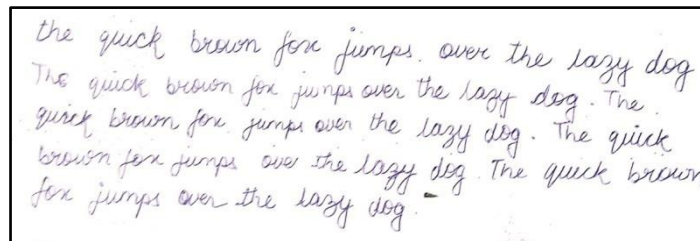 the quick brown fox jumps. over the lazy dog
The quick brown fox jumps over the lazy dog. The
quick brown fox jumps over the lazy dog. The quick
brown fox jumps over the lazy dog. The quick brown
fox jumps over the lazy dog.